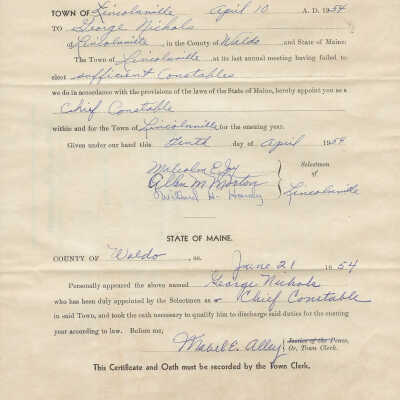 TOWN OF Lincolnville April 10 A. D. 1954
TO George Nichols
of Lincolnville, in the County of Waldo, and State of Maine:
The Town of Lincolnville, at its last annual meeting having failed to
elect sufficient Constables
we do in accordance with the provisions of the laws of the State of Maine, hereby appoint you as a
Chief Constable
within and for the Town of Lincolnville for the ensuing year.
Given under our hand this tenth day of April 1954
Malcolm E. Joy
Allen M. Morton
Willard H. Hardy
Selectmen
of
Lincolnville
STATE OF MAINE.
COUNTY OF Waldo, ss. June 21 1954
Personally appeared the above named George Nichols
who has been duly appointed by the Selectmen as a Chief Constable
in said Town, and took the oath necessary to qualify him to discharge said duties for the ensuing
year according to law. Before me,
Mabel E. Alley
Justice of the Peace,
Or, Town Clerk.
This Certificate and Oath must be recorded by the Town Clerk.